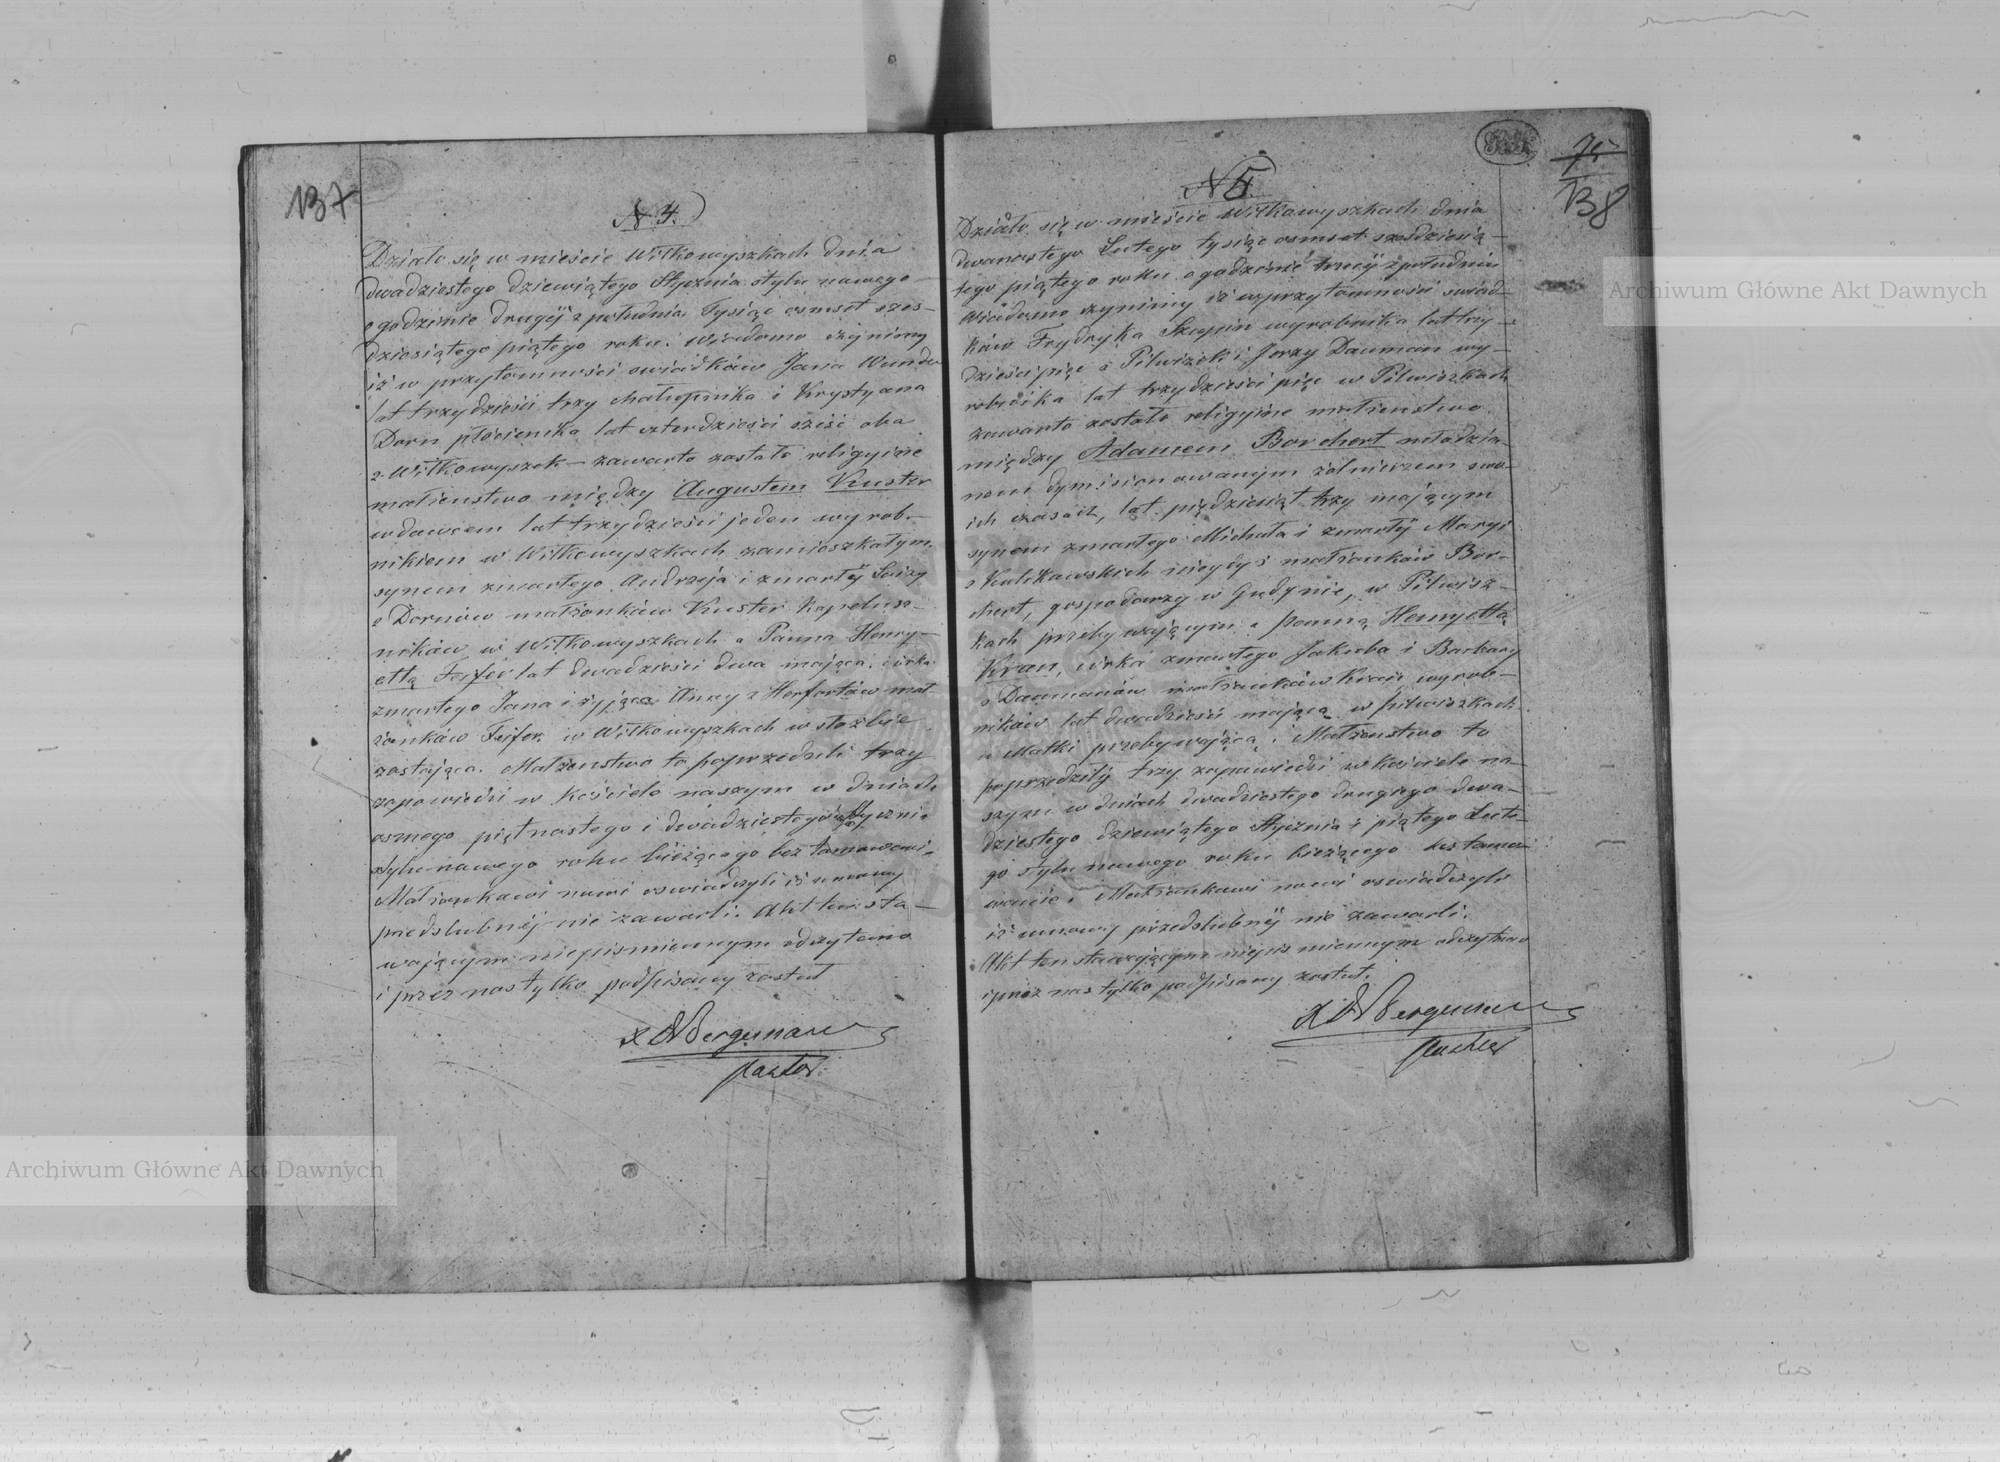 137
N 4.
Działo się w mieście Wiłkowyszkach dnia
dwadziestego dziewiątego Stycznia stylu nowego
o godzinie drugiéj z południa Tysiąc osmset szes-
dziesiątego piątego roku. Wiadomo czyniemy
iż w przytomności swiadków Jana
lat trzydzieści trzy i Krystyana
Dorn płóciennika lat czterdzieści sześć oba
z Wiłkowyszek – zawarte zostało religyine
małżenstwo między Augustem Kuster
wdowcem lat trzydzieści jeden wyrob-
nikiem w Wiłkowyszkach zamieszkałym
synem zmarłego Andrzeja i zmarłéj
z Dornów małżonków Kuster kapelusz-
ników w Wiłkowyszkach a Panną Henry-
ettą Fejfer lat dwadzieścia dwa mająca, córka
zmarłego Jana i żyjącéj Anny z Herfortów mał-
żonków Fejfer w Wiłkowyszkach w służbie
zostająca. Małżenstwo to poprzedzili trzy
zapowiedzi w kościele naszym w dniach
osmego piętnastego i dwudziestego Stycznia
stylu nowego roku bieżącego bez tamowania
Małżonkowi nowi oswiadczyli iż umowy
przedślubnéj nie zawarli. Akt ten sta-
wającym niepismiennym odczytano
i przez nas tylko podpisany został
Bergemann
Pastor
75
138
N 5.
Działo się w mieście Wiłkowyszkach dnia
dwunastego Lutego tysiąc osmset szesdziesią-
tego piątego roku o godzinie trzeciéj z południa
Wiadomo czyniemy iż w przytomności swiad-
ków Frydryka wyrobnika lat trzy-
dzieści pięć z Pilwiszek i Jerzy Dauman wy-
robnika lat trzydzieści pięć w Pilwiszkach
zawarte zostało religyine małżenstwo
między Adamem Borchert młodzia-
nem dymisionowanym żołnierzem
lat pięćdziesiąt trzy mającym
synem zmarłego Michała i zmarłéj Maryi
z małżonków Bor-
chert, gospodarzy w w Pilwisz-
kach przebywającym a panną Henryettą
Kran, córka zmarłego Jakuba i Barbary
z Daumanów małżonków Kran wyrob-
ników lat dwadzieścia mającą w Pilwiszkach
u Matki przebywającą. Małżenstwo to
poprzedziły trzy zapowiedzi w kościele na-
szym w dniach dwadziestego drugiego dwa-
dziestego dziewiątego Stycznia i piątego Lute-
go stylu nowego roku bieżącego bez tamo-
wania. Małżonkowi nowi oswiadczyli
iż umowy przedślubnéj nie zawarli.
Akt ten stawającym niepismiennym odczytano
i przez nas tylko podpisany został.
Bergemann
Pastor
Archiwum Główne Akt Dawnych
Archiwum Główne Akt Dawnych